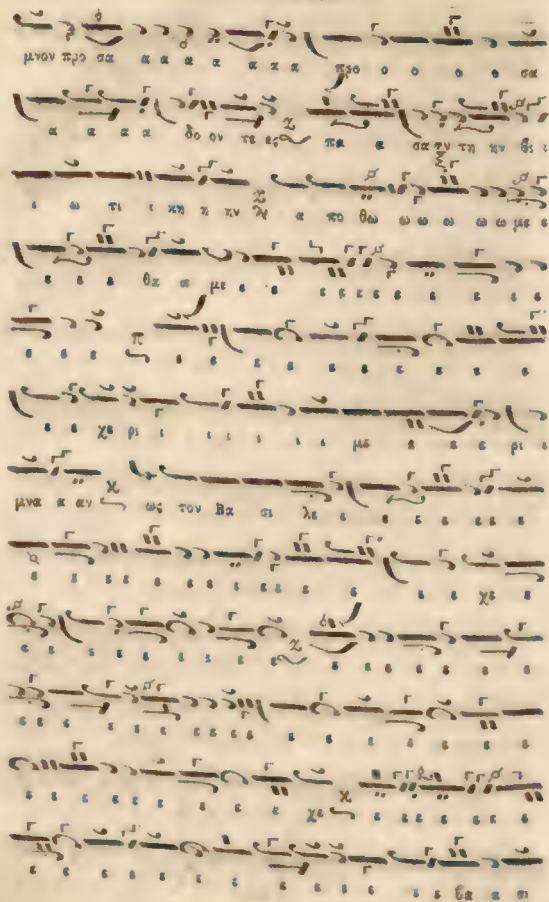 μνον προ σα α α α α α α α προ ο ο ο ο σα
α α α α δο ον τε ες πα α σα αν τη ην βι ι
ι ω τι ι κη η ην α πο θω ω ω ω ω ω με ε
ε ε ε θα α με ε ε ε ε ε ε ε ε ε ε ε
ε ε ε ε ε ε ε ε ε ε ε ε ε ε
ε ε χε ρι ι ι ι ι ι ι με ε ε ε ρι ι
μνα α αν ως τον Βα σι λε ε ε ε ε ε ε
ε ε ε ε ε ε ε ε ε ε ε ε ε ε χε ε
ε ε ε ε ε ε ε ε ε ε ε ε ε ε ε
ε ε ε ε ε ε ε ε ε ε ε ε ε ε ε ε ε
ε ε ε ε ε ε ε ε ε ε χε ε ε ε ε ε ε
ε ε ε ε ε ε ε ε ε ε ε ε ε ε βα α σι